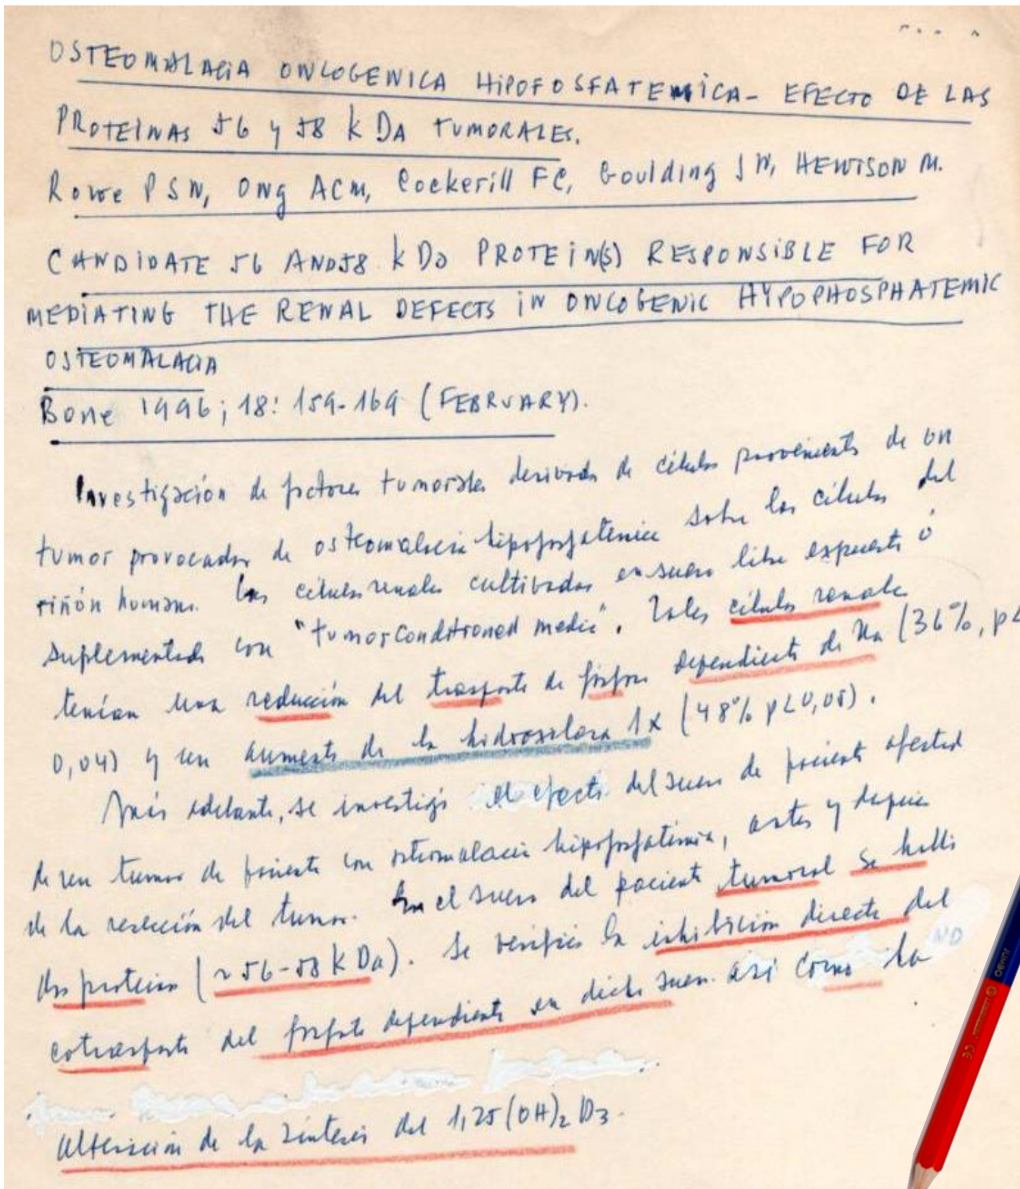 OSTEOMALACIA ONCOGENICA HIPOFOSFATEMICA - EFECTO DE LAS
PROTEINAS 56 y 58 k DA TUMORALES.
Rowe PSN, Ong ACM, Cockerill FC, Goulding JN, HEWISON M.
CANDIDATE 56 AND 58 k Da PROTEIN(S) RESPONSIBLE FOR
MEDIATING THE RENAL DEFECTS IN ONCOGENIC HYPOPHOSPHATEMIC
OSTEOMALACIA
Bone 1996; 18: 159-169 (FEBRUARY).
Investigación de factores tumorales derivados de células proveniente de un
tumor provocador de osteomalacia hipofosfatemica sobre las células del
riñón humano. Las células renales cultivadas en suero libre expuesto ó
suplementado con "tumor conditioned media". Tales células renales
tenían una reducción del trasporte de fósforo dependiente de Na (36%, p<
0,04) y un aumento de la hidroxilasa 1α (48% p<0,05).
Más adelante, se investigó el efecto del suero de paciente afectad
de un tumor de paciente con osteomalacia hipofosfatémica, antes y después
de la resección del tumor. En el suero del paciente tumoral se halló
dos proteínas (~56-58 k Da). Se verificó la inhibición directa del
cotrasporte del fosfato dependiente en dicho suero así como la
alteración de la síntesis del 1,25(OH)2 D3.